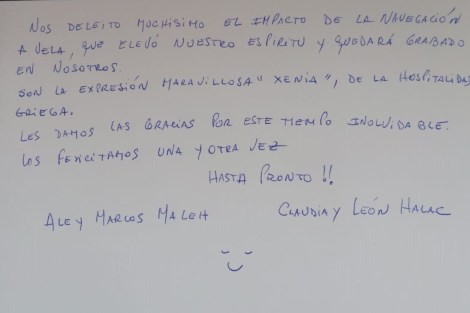 NOS DELEITO MUCHÍSIMO EL IMPACTO DE LA NAVEGACIÓN
A VELA, QUE ELEVÓ NUESTRO ESPIRITU Y QUEDARÁ GRABADO
EN NOSOTROS.
SON LA EXPRESIÓN MARAVILLOSA "XENIA", DE LA HOSPITALIDAD
GRIEGA.
LES DAMOS LAS GRACIAS POR ESTE TIEMPO INOLVIDABLE.
LOS FELICITAMOS UNA Y OTRA VEZ
HASTA PRONTO !!
ALE Y MARCOS MALEH
CLAUDIA Y LEÓN HALAC